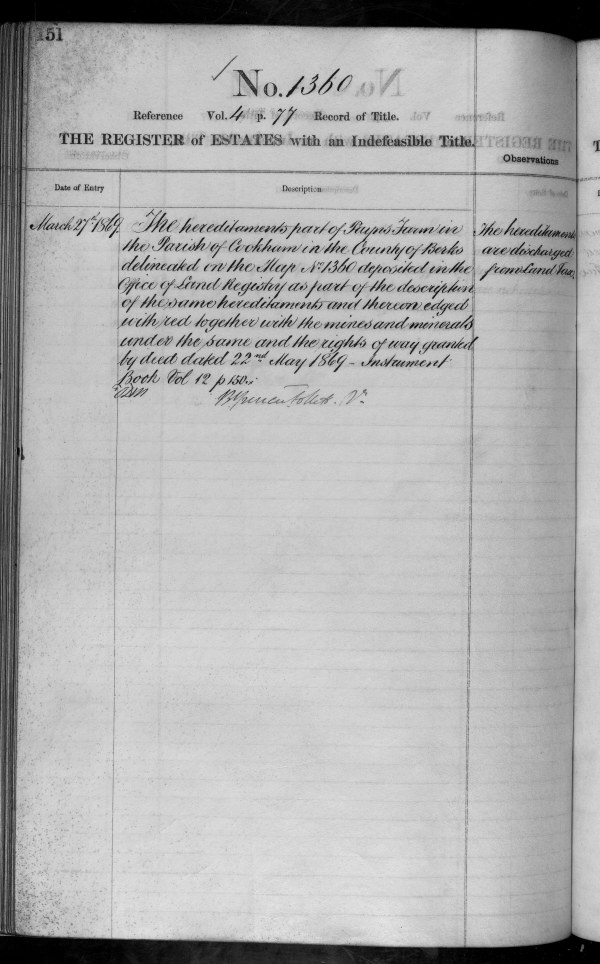 151
No. 1360
Reference Vol. 4 p. 77 Record of Title.
THE REGISTER of ESTATES with an Indefeasible Title.
Observations
Date of Entry
Description
March 27th 1869
The hereditaments part of Farm in
the Parish of Cookham in the County of Berks
delineated on the Map No 1360 deposited in the
Office of Land Registry as part of the description
of the same hereditaments and thereon edged
with red together with the mines and minerals
under the same and the rights of way granted
by deed dated 22nd May 1869 - Instrument
Book Vol 12 p 130
Follett
The hereditaments
are discharged
from Land Tax